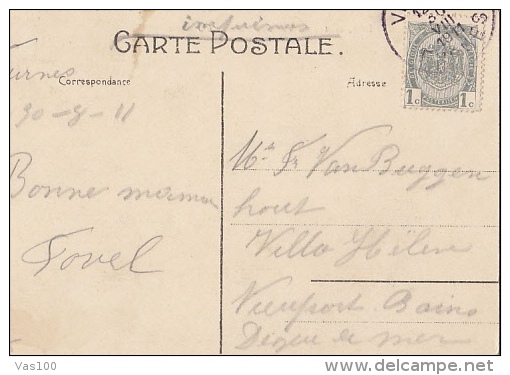 imprimés
CARTE POSTALE.
Correspondance
Adresse
1c 1c
Furnes
30-8-11
Mr Fr Van Buggen
hout
Bonne
Villa Hélène
Fovel
Nieuport Bains
Digue de mer
Vas100
delcampe.net